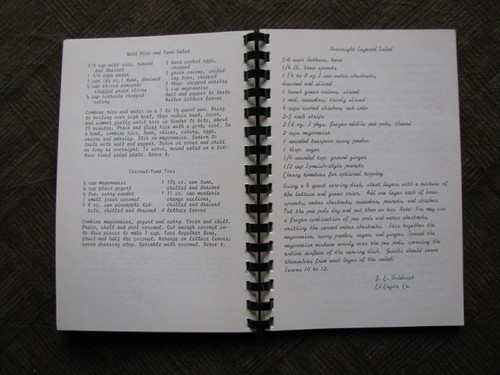 Wild Rice and Tuna Salad
2/3 cup wild rice, rinsed
and drained
1 3/4 cups water
1 can (6½ oz.) tuna, drained
½ cup sliced pimiento
stuffed green olives
½ cup coarsely chopped
celery
2 hard cooked eggs,
chopped
2 green onions, includ-
ing tops, chopped
2 Tbsp. chopped parsley
½ cup mayonnaise
Salt and pepper to taste
Butter lettuce leaves
Combine rice and water in a 1½ quart pan. Bring
to boiling over high heat, then reduce heat, cover,
and simmer gently until rice is tender to bite, about
Drain and fluff rice with a fork; cool. In
a bowl, combine rice, tuna, olives, celery, eggs,
onions and parsley. Stir in mayonnaise. Season to
taste with salt and pepper. Serve or cover and chill
as long as overnight. To serve, mound salad on a let-
tuce lined salad plate. Serves 4.
Coconut-Tuna Toss
½ cup mayonnaise
½ cup plain yogurt
curry powder
1 small fresh coconut
1 can pineapple tid-
bits, chilled and drained
can tuna,
chilled and drained
1 11 oz. can mandarin
orange sections,
chilled and drained
4 lettuce leaves
Combine mayonnaise, yogurt and curry. Cover and chill.
Drain, shell and peel coconut. Cut enough coconut in-
to thin pieces to make 1 cup. Toss together tuna,
fruit and half the coconut. Arrange on lettuce leaves;
serve dressing atop. Sprinkle with coconut. Serves 4.
Overnight Layered Salad
cups lettuce, torn
1/2 lb. bean sprouts
1 (4 to 8 oz.) can water chestnuts,
drained and sliced
1 bunch green onions, sliced
1 med. cucumber, thinly sliced
4 cups cooked chicken, cut into
2-3 inch strips
2 (6 oz.) pkgs. frozen edible pea pods, thawed
2 cups mayonnaise
1 rounded teaspoon curry powder
1 tbsp. sugar
1/4 rounded tsp. ground ginger
1/2 cup Spanish-style peanuts
Cherry tomatoes for optional topping
Using a 4 quart serving dish, start layers with a mixture of
the lettuce and green onion. Add one layer each of bean
sprouts, water chestnuts, cucumber, peanuts, and chicken.
Put the pea pods dry and put them on top. Note: You may use
a frozen combination of pea pods and water chestnuts,
omitting the canned water chestnuts. Stir together the
mayonnaise, curry powder, sugar, and ginger. Spread the
mayonnaise mixture evenly over the pea pods, covering the
entire surface of the serving dish. Guests should serve
themselves from each layer of the salad.
Serves 10 to 12.